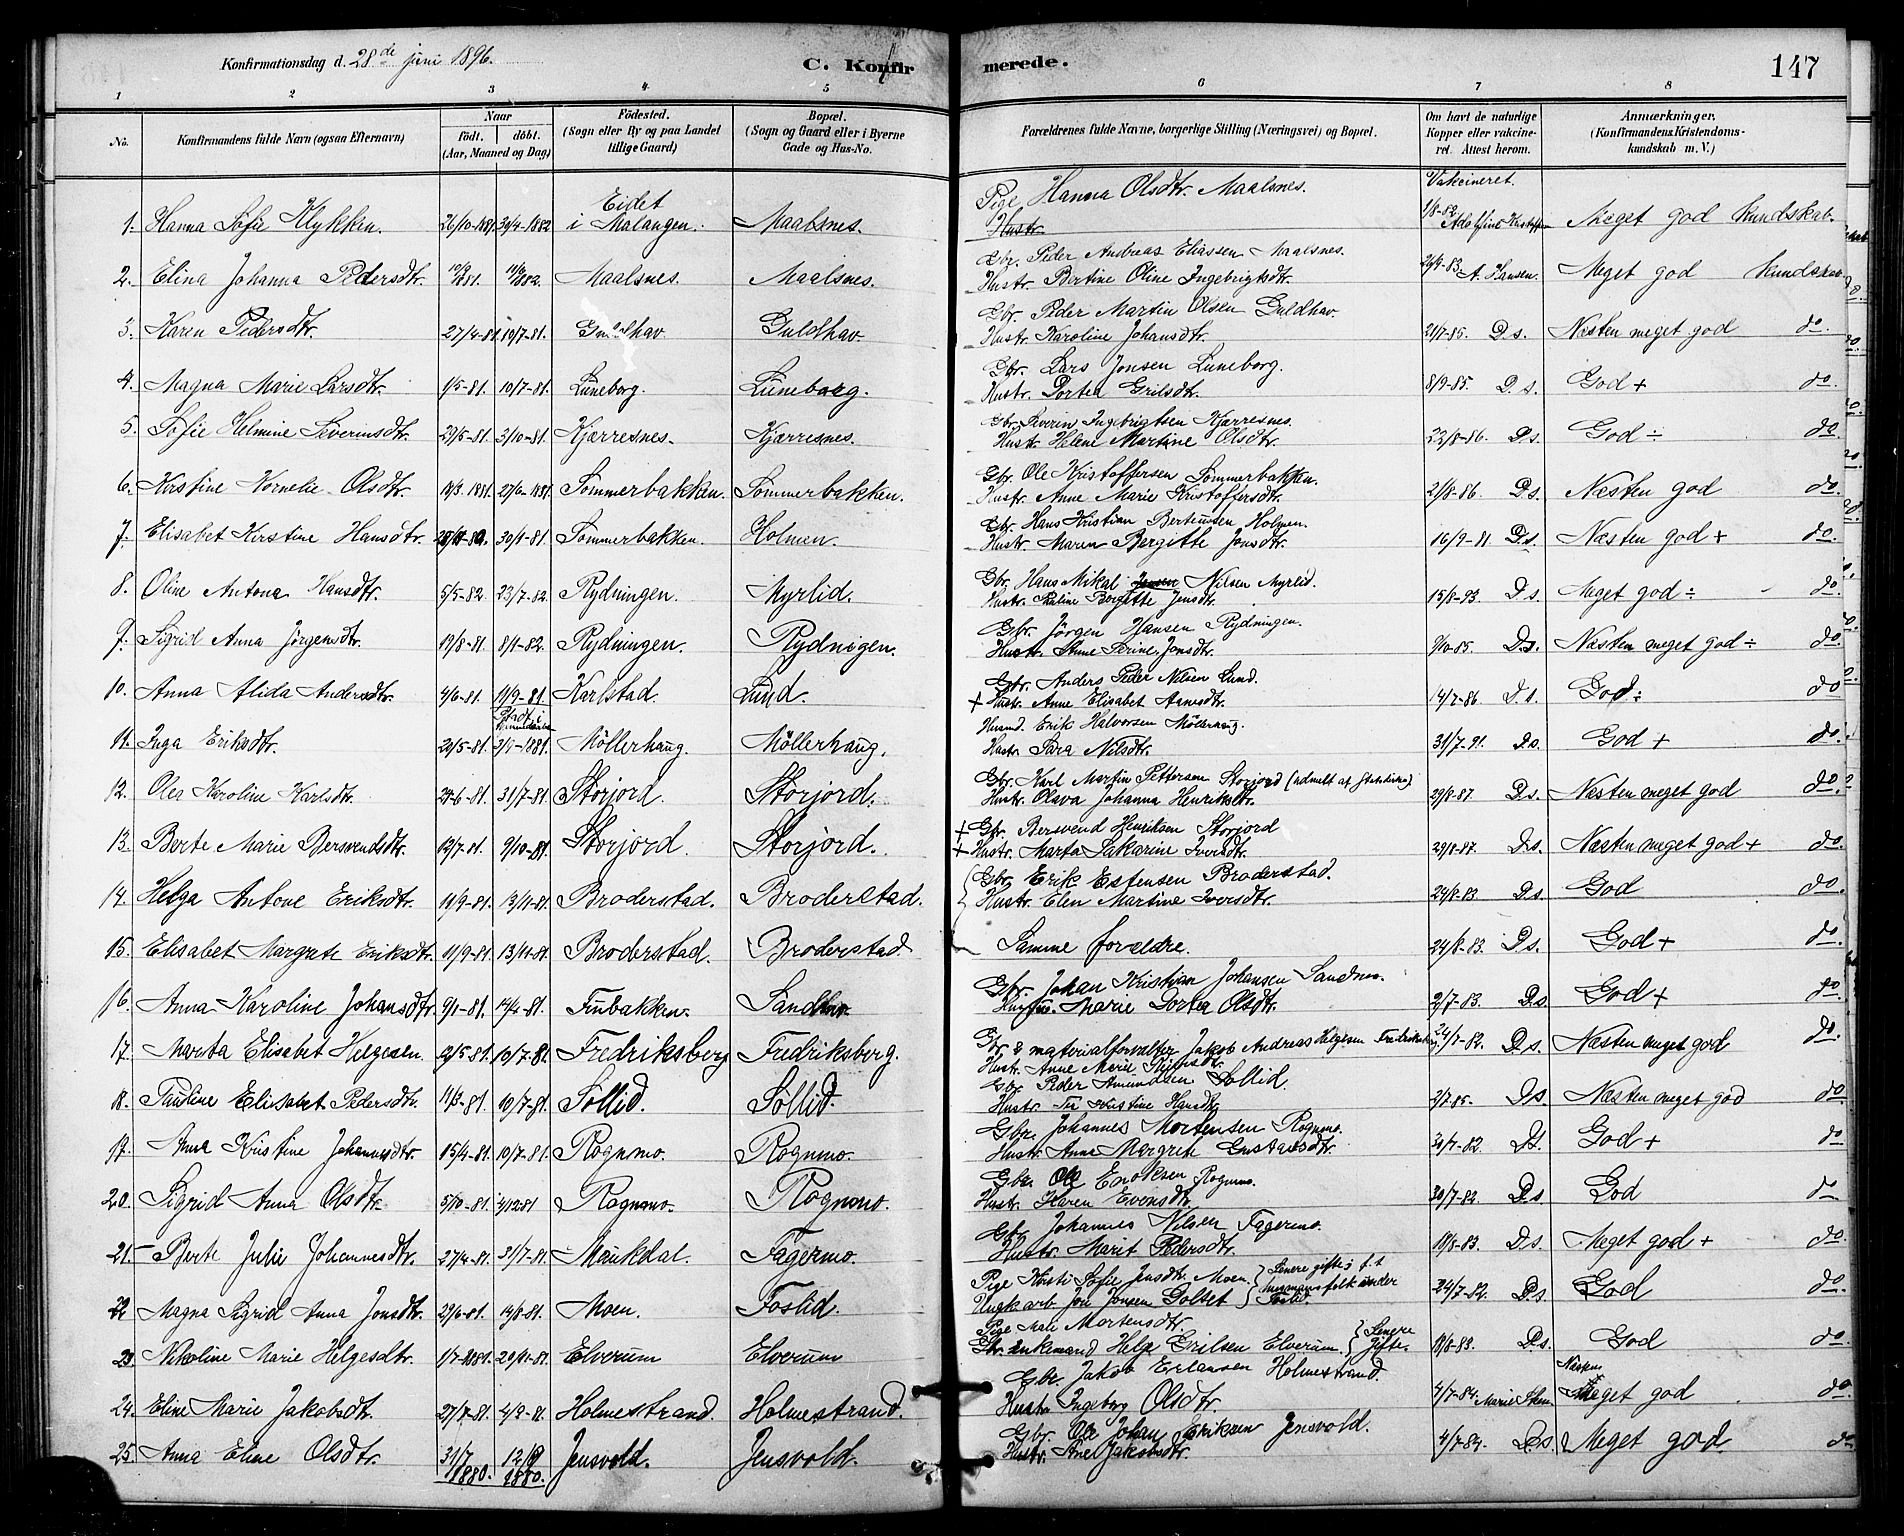 Konfirmationsdag d. 28de juni 1896.
C. Konfirmerede.
147
1 2 3 4 5 6 7 8
No.
Konfirmandens fulde Navn (ogsaa Efternavn)
Naar
født. døbt.
(Aar, Maaned og Dag)
Fødested.
(Sogn eller By og paa Landet
tillige Gaard)
Bopæl.
(Sogn og Gaard eller i Byerne
Gade og Hus-No.
Forældrenes fulde Navne, borgerlige Stilling (Næringsvei) og Bopæl.
Om havt de naturlige
Kopper eller vakcine-
ret. Attest herom.
Anmærkninger.
(Konfirmandens Kristendoms-
kundskab m. V.)
Vakcineret.
1. Hanna Sofie Klykken. 26/10-1881 30/4-1882 Eidet i Malangen. Maalsnes. Pige Hanna Olsdtr. Maalsnes. Hustr. 1/8-82 Meget god kundskab.
2. Elina Johanna Pedersdtr. Maalsnes. Maalsnes. Gbr. Peder Andreas Eliassen Maalsnes. Hustr. Bertine Oline Ingebrigtsdtr. 29/9-83 A. Hansen. Meget god kundskab
3. Karen Pedersdtr. 27/4-81. 10/7-81. Guldhav. Guldhav. Gbr. Peder Martin Olsen Guldhav. Hustr. Karoline Johansdtr. 21/7-85. D.s. Næsten meget god do.
4. Magna Marie Larsdtr. 1/5-81. 10/7-81. Luneborg. Luneborg. Gbr. Lars Jonsen Luneborg. Hustr. Dortea Grilsdtr. 8/9-85. D.s. God + do.
5. Sofie Helmine Severinsdtr. 29/5-81. 3/10-81. Kjærresnes. Kjærresnes. Gbr. Severin Ingebrigtsen Kjærresnes. Hustr. Helene Martine Olsdtr. 22/8-86. D.s. God ÷ do.
6. Kirstine Kornelie Olsdtr. 27/6-1881. Sommerbakken. Sommerbakken. Gbr. Ole Kristoffersen Sommerbakken. Hustr. Anne Marie Kristoffersdtr. 21/8-86. D.s. Næsten god do.
7. Elisabet Kirstine Hansdtr. 30/1-81. Sommerbakken. Holmen. Gbr. Hans Kristian Berteussen Holmen. Hustr. Maren Bergitte Jonsdtr. 16/9-81. D.s. Næsten god + do.
8. Oline Antona Hansdtr. 5/5-82. 23/7-82. Rydningen. Myrlid. Gbr. Hans Mikal Nilsen Myrlid. Hustr. Paline Bergitte Jensdtr. 15/8-93. D.s. Meget god ÷ do.
9. Sigrid Anna Jørgensdtr. 19/8-81. 8/1-82. Rydningen. Rydnigen. Gbr. Jørgen Hansen Rydningen. Hustr. Anne Serine Jonsdtr. 9/10-85. D.s. Næsten meget god ÷ do.
10. Anna Alida Andersdtr. 4/6-81. 11/9-81. Karlstad. Lund. Gbr. Anders Peder Nilsen Lund. + Hustr. Anne Elisabet Hansdtr. 14/7-86. D.s. God ÷ do
11. Inga Eriksdtr. 20/5-81. Møllerhaug. Møllerhaug. Husmd. Erik Halvorsen Møllerhaug. Hustr. Sara Nilsdtr. 31/7-91. D.s. God + do.
12. Olea Karoline Karlsdtr. 31/7-81. Storjord. Storjord. Gbr. Karl Martin Pettersen Storjord (udmeldt af Statskirken) Hustr. Olava Johanna Henriksdtr. 29/8-87. D.s. Næsten meget god do.
13. Berte Marie Bersvendsdtr. 12/7-81. 9/10-81. Storjord. Storjord. + Gbr. Bersvend Henriksen Storjord + Hustr. Marta Sakarine Iversdtr. 29/8-87. D.s. Næsten meget god + do.
14. Helga Antone Eriksdtr. 11/9-81. 13/11-81. Broderstad. Broderstad. Gbr. Erik Estensen Broderstad. Hustr. Elen Martine Iversdtr. 24/8-83. D.s. God do.
15. Elisabet Margrete Eriksdtr. 11/9-81. 13/11-81. Broderstad. Broderstad. Samme forældre. 24/8-83. D.s. God + do.
16. Anna Karoline Johansdtr. 9/1-81. Finbakken. Sandmo. Gbr. Johan Kristian Johansen Sandmo. Marie Dortea Olsdtr. 2/7-83. D.s. God + do.
17. Marta Elisabet Helgesen. 9/5-81. 10/7-81. Fredriksberg Fredriksberg. Gbr. & materialforvalter Jakob Andreas Helgesen Fredriksberg. Hustr. Anne Marie 24/7-82. D.s. Næsten meget god do.
18. Pauline Elisabet Pedersdtr. 11/3-81. 10/7-81. Sollid. Sollid. Gbr. Peder Amundsen Sollid. Hustr. Kristine Hansdtr. 2/7-85. D.s. Næsten meget god do.
19. Anna Kristine Johannesdtr. 15/4-81. 10/7-81. Rognmo. Rognmo. Gbr. Johannes Mortensen Rognmo. Hustr. Anna Margrete Gustavsdtr. 30/7-82. D.s. God + do
20. Sigrid Anna Olsdtr. 5/10-81. Rognmo. Rognmo. Gbr. Ole Enoksen Rognmo. Hustr. Karen Evensdtr. 30/7-82. D.s. God do
21. Berte Julie Johannesdtr. 27/4-81. 31/7-81. Maukdal. Fagermo. Gbr. Johannes Nilsen Fagermo. Hustr. Marit Pedersdtr. 18/8-83. D.s. Meget god + do.
22 Magna Sigrid Anna Jonsdtr. 29/6-81. 14/8-81. Moen. Foslid. Pige Kirsti Sofie Jensdtr. Moen. Ungk. arb. Jon Jonsen Golset Senere gifte; f.t. husmansfolk under Foslid. 24/7-82. D.s. God do.
23 Nikoline Marie Helgesdtr. 1/7-1881. 20/11-81. Elverum Elverum Pige Mali Mortensdtr. Gbr. Enkemand Helge Grilsen Elverum. Senere Gifte. 18/8-83. D.s. God do.
24. Eline Marie Jakobsdtr. 27/7-81. 4/9-81. Holmestrand. Holmestrand. Gbr. Jakob Erlansen Holmestrand. Hustr. Ingeborg Olsdtr. 4/7-84. Næsten Meget god do
25. Anna Eline Olsdtr. 31/7 1880. 12/9 1880. Jensvold. Jensvold. Gbr. Ole Johan Eriksen Jensvold. Hustr. Ane Jakobsdtr. 4/7-84. D.s. Meget god do